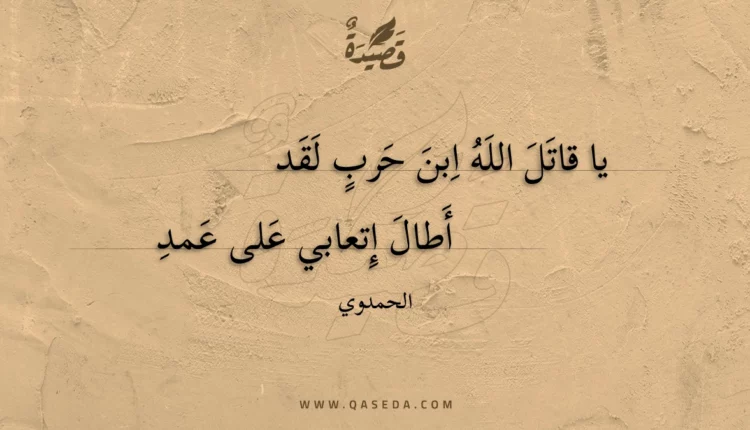 قَصِيدَةٌ
يا قاتَلَ اللَهُ اِبنَ حَربٍ لَقَد
أَطالَ إِتعابي عَلى عَمدِ
الحمدوي
WWW.QASEDA.COM